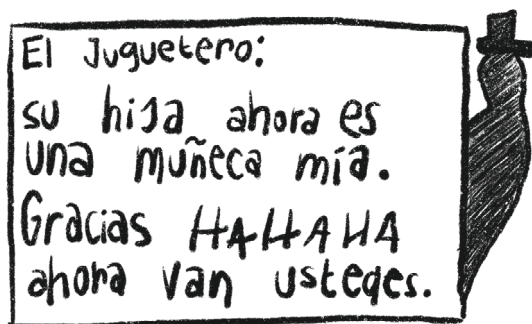 El Juguetero:
su hija ahora es
una muñeca mía.
Gracias HAHAHA
ahora van ustedes.